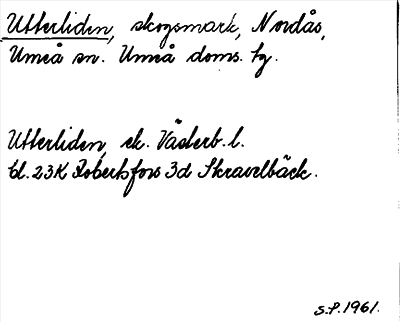 Utterliden, skogsmark, Nordås,
Umeå sn. Umeå doms. tg.
Utterliden, ek. Västerb. l.
bl. 23K Robertsfors 3d Skravelbäck.
S.P. 1961.